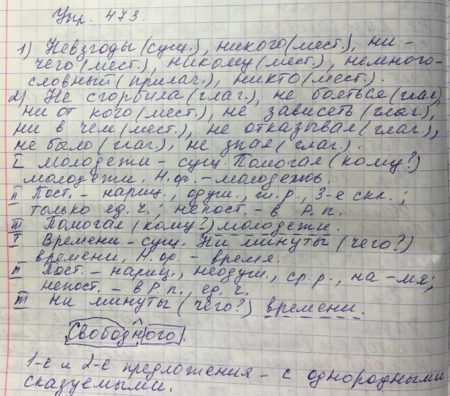 Упр. 473.
1) Невзгоды (сущ.), никого (мест.), ни-
чего (мест.), никому (мест.), немного-
словный (прилаг.), никто (мест.).
2) Не сгорбила (глаг.), не бояться (глаг),
ни от кого (мест.), не зависеть (глаг),
ни в чем (мест.), не отказывал (глаг.),
не было (глаг), не зная (глаг.).
I молодежи - сущ. Помогал (кому?)
молодежи. Н.ф. - молодежь.
II Пост. - нариц., одуш., ж.р., 3-е скл.;
только ед. ч.; непост. - в Р.п.
III Помогал (кому?) молодежи.
I Времени - сущ. Ни минуты (чего?)
времени. Н.ф. - время.
II Пост. - нариц., неодуш., ср.р., на -мя;
непост. - в Р.п., ед. ч.
III Ни минуты (чего?) времени.
Свободного.
1-е и 2-е предложения - с однородными
сказуемыми.